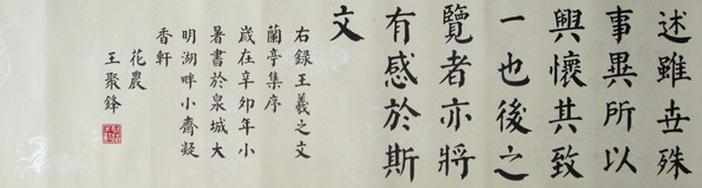 述雖世殊
事異所以
興懷其致
一也後之
覽者亦將
有感於斯
文
右録王羲之文
蘭亭集序
歲在辛卯年小
暑書於泉城大
明湖畔小齋凝
香軒
花農
王聚鋒